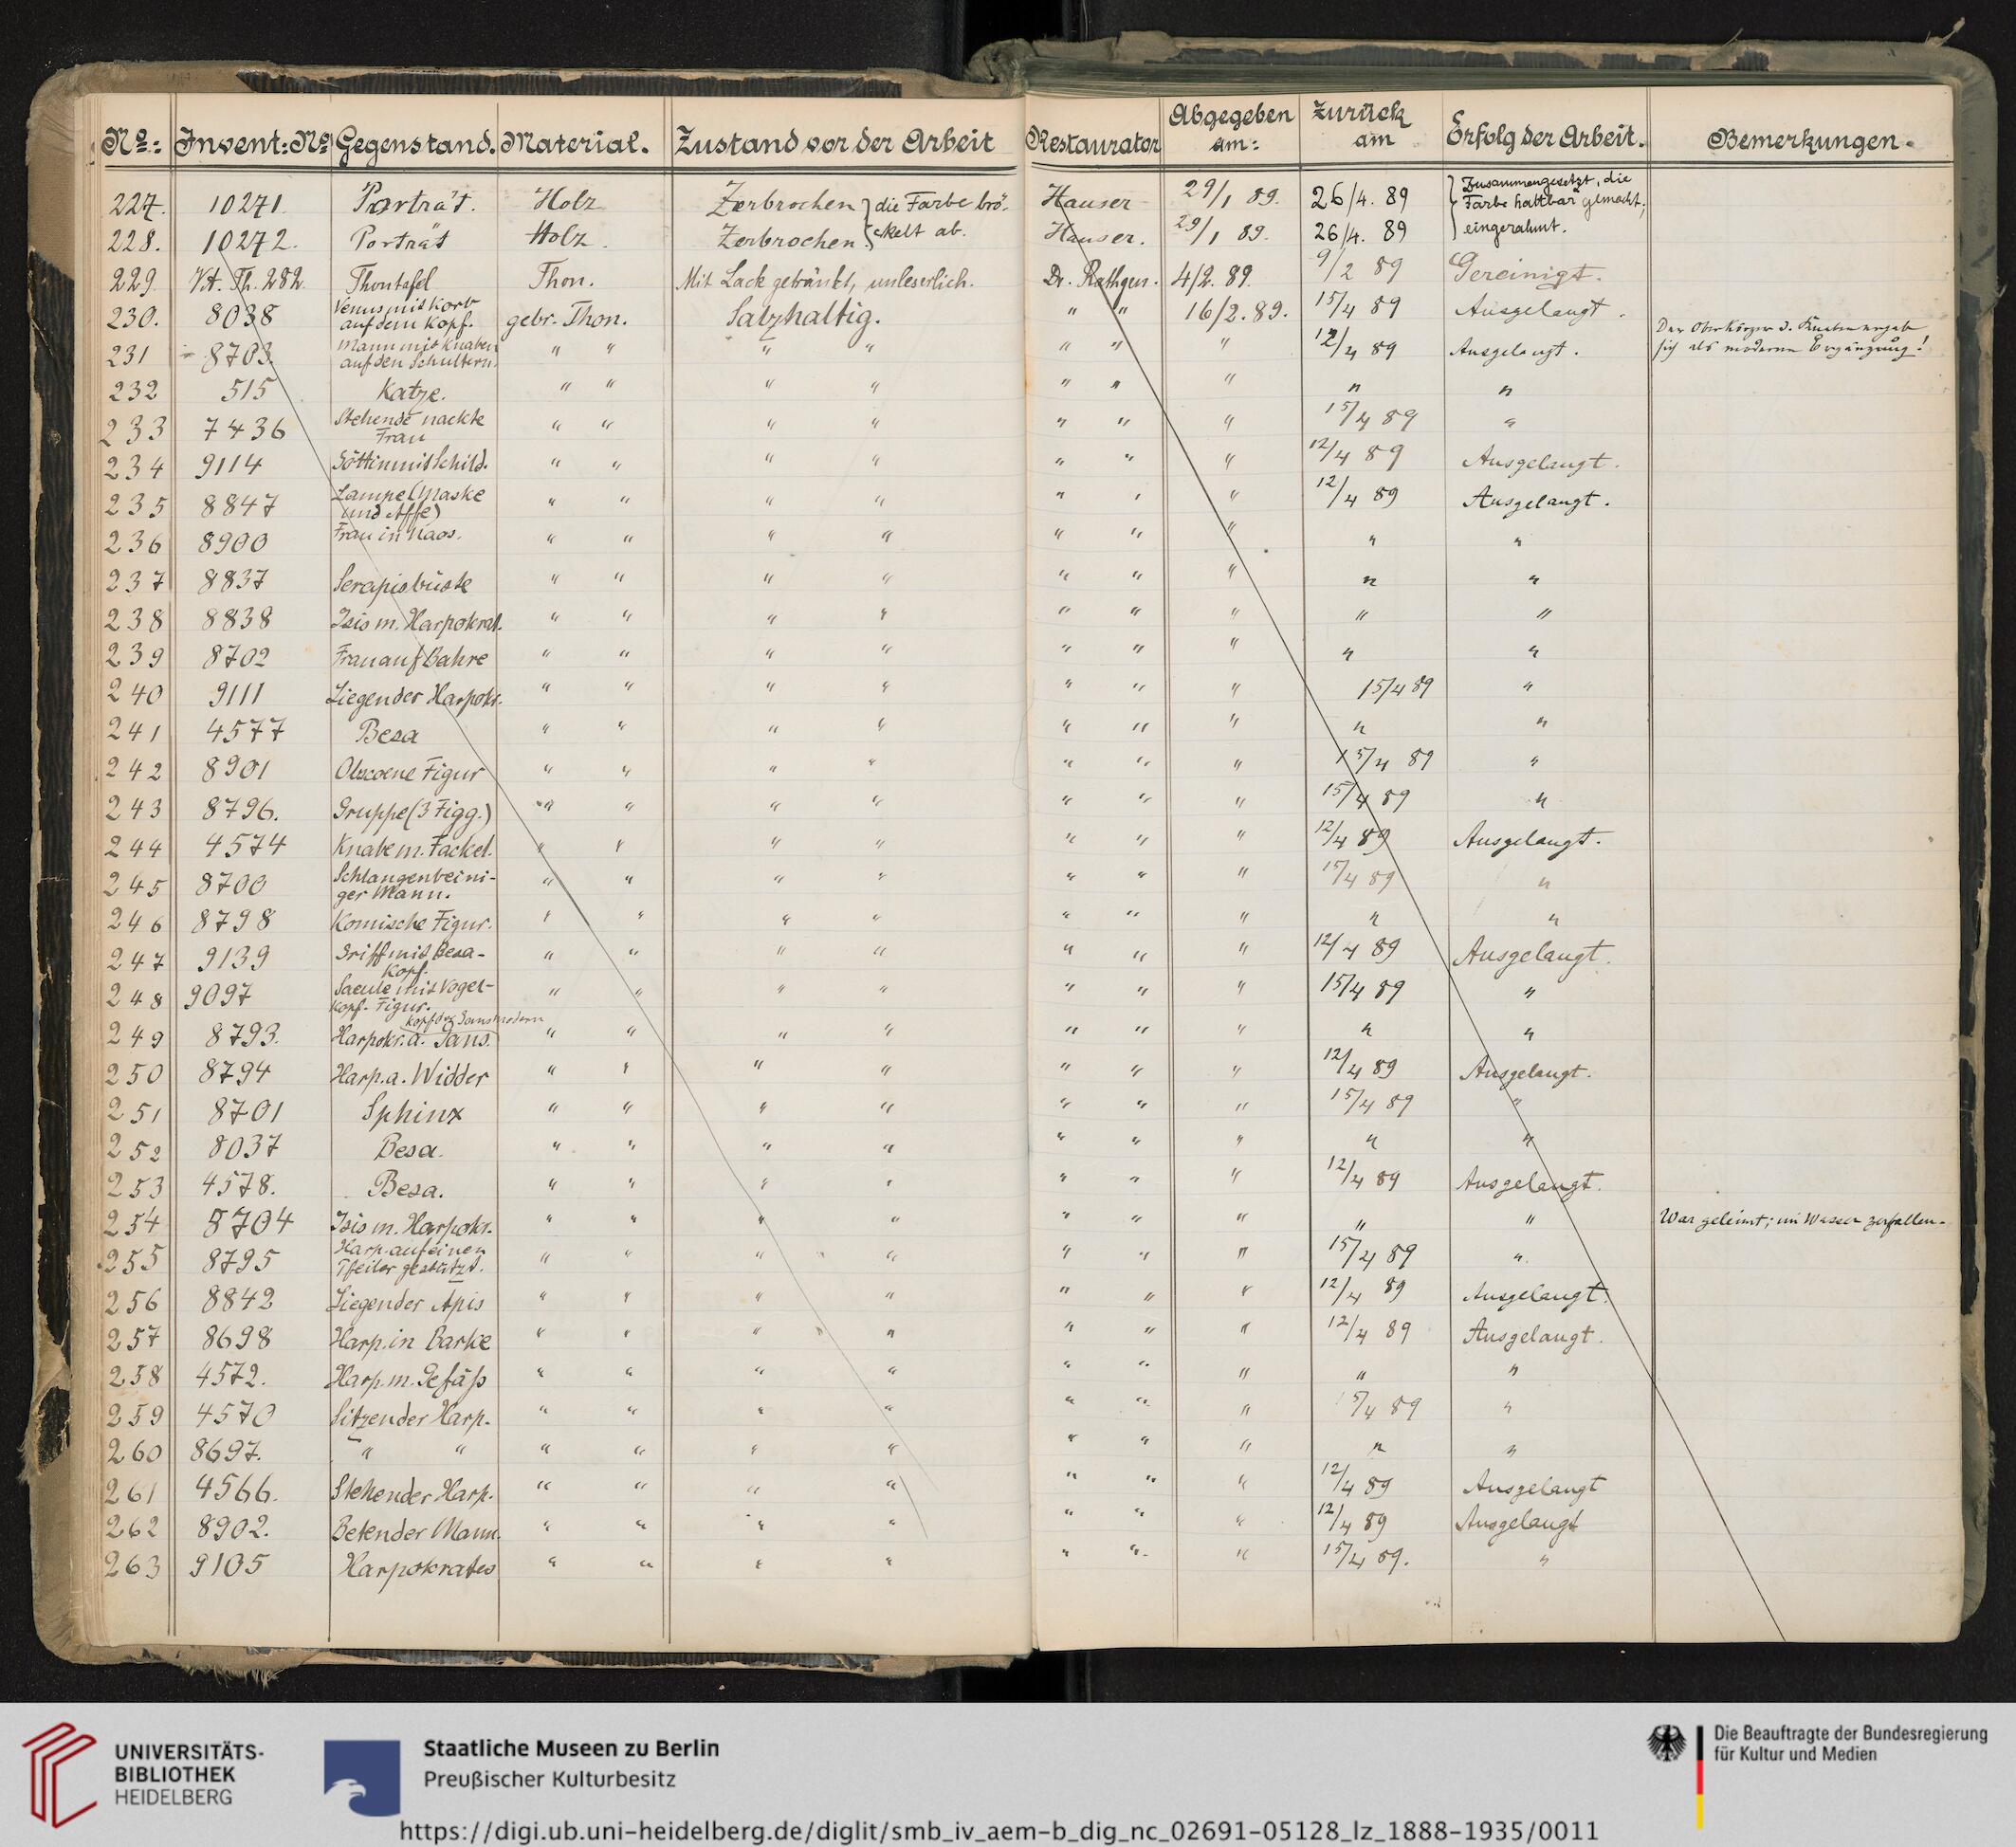 No: Invent: No Gegenstand. Material. Zustand vor der Arbeit Restaurator Abgegeben am: Zurück am Erfolg der Arbeit. Bemerkungen.
227. 10271 Porträt. Holz Zerbrochen } die Farbe brö- Hauser 29/1 89. 26/4. 89 } Zusammengesetzt, die Farbe haltbar gemacht,
228. 10272. Porträt Holz. Zerbrochen. } ckelt ab. Hauser. 29/1 89. 26/4. 89 eingerahmt.
229. V.A. Th. 282. Thontafel Thon. Mit Lack getränkt, unleserlich. Dr. Rathgen. 4/2. 89. 9/2 89 Gereinigt.
230. 8038 Venus mit Korb auf dem Kopf. gebr. Thon. Salzhaltig. " " 16/2. 89. 15/4 89 Ausgelaugt.
231 8703. Mann mit Knaben auf den Schultern. " " " " " " " 12/4 89 Ausgelaugt. Der Oberkörper d. Knaben ergab sich als moderne Ergänzung!
232 515 Katze. " " " " " " " " "
233 7436 Stehende nackte Frau " " " " " " " 15/4 89 "
234 9114 Göttin mit Schild. " " " " " " " 12/4 89 Ausgelaugt.
235 8847 Lampe (Maske und Affe) " " " " " " " 12/4 89 Ausgelaugt.
236 8900 Frau in Naos. " " " " " " " " "
237 8837 Serapisbüste " " " " " " " " "
238 8838 Isis m. Harpokrat. " " " " " " " " "
239 8702 Frau auf Bahre " " " " " " " " "
240 9111 Liegender Harpokr. " " " " " " " 15/4 89 "
241 4577 Besa " " " " " " " " "
242 8901 Obscoene Figur " " " " " " " 15/4 89 "
243 8796. Gruppe (3 Figg.) " " " " " " " 15/4 89 "
244 4574 Knabe m. Fackel. " " " " " " " 12/4 89 Ausgelaugt.
245 8700 Schlangenbeini- ger Mann. " " " " " " " 15/4 89 "
246 8798 Komische Figur. " " " " " " " " "
247 9139 Griff mit Besa- Kopf. " " " " " " " 12/4 89 Ausgelaugt.
248 9097 Saeule mit Vogel- kopf-Figur. " " " " " " " 15/4 89 "
Kopf der Gans modern
249 8793. Harpokr. a. Gans. " " " " " " " " "
250 8794 Harp. a. Widder " " " " " " " 12/4 89 Ausgelaugt.
251 8701 Sphinx " " " " " " " 15/4 89 "
252 8037 Besa. " " " " " " " " "
253 4578. Besa. " " " " " " " 12/4 89 Ausgelaugt.
254 8704 Isis m. Harpokr. " " " " " " " " " War geleimt; im Wasser zerfallen.
255 8795 Harp. auf einen Pfeiler gestützt. " " " " " " " 15/4 89 "
256 8842 Liegender Apis " " " " " " " 12/4 89 Ausgelaugt.
257 8698 Harp. in Barke " " " " " " " 12/4 89 Ausgelaugt.
258 4572. Harp. m. Gefäß " " " " " " " " "
259 4570 Sitzender Harp. " " " " " " " 15/4 89 "
260 8697. " " " " " " " " " " "
261 4566. Stehender Harp. " " " " " " " 12/4 89 Ausgelaugt
262 8902. Betender Mann. " " " " " " " 12/4 89 Ausgelaugt
263 9105 Harpokrates " " " " " " " 15/4 89. "
UNIVERSITÄTS-
BIBLIOTHEK
HEIDELBERG
Staatliche Museen zu Berlin
Preußischer Kulturbesitz
Die Beauftragte der Bundesregierung
für Kultur und Medien
https://digi.ub.uni-heidelberg.de/diglit/smb_iv_aem-b_dig_nc_02691-05128_lz_1888-1935/0011